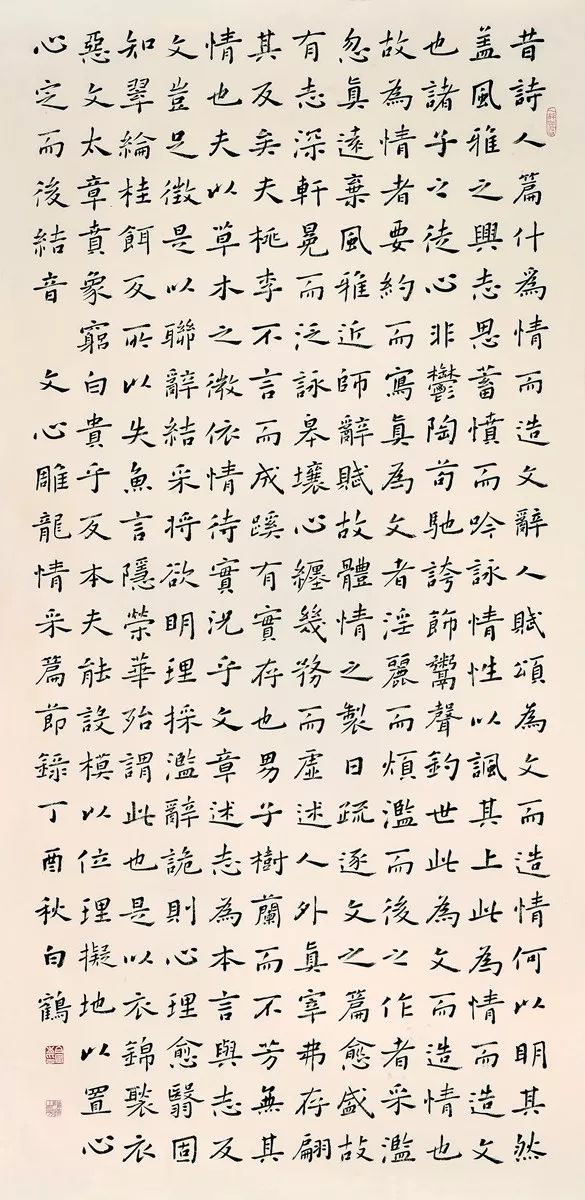 昔詩人篇什為情而造文辭人賦頌為文而造情何以明其然
盖風雅之興志思蓄憤而吟詠情性以諷其上此為情而造文
也諸子之徒心非鬱陶苟馳誇飾鬻聲釣世此為文而造情也
故為情者要約而寫真為文者淫麗而煩濫而後之作者采濫
忽真遠棄風雅近師辭賦故體情之製日疏逐文之篇愈盛故
有志深軒冕而泛詠皋壤心纏幾務而虛述人外真宰弗存翩
其反矣夫桃李不言而成蹊有實存也男子樹蘭而不芳無其
情也夫以草木之微依情待實況乎文章述志為本言與志反
文豈足徵是以聯辭結采將欲明理採濫辭詭則心理愈翳固
知翠綸桂餌反所以失魚言隱榮華殆謂此也是以衣錦褧衣
惡文太章賁象窮白貴乎反本夫能設模以位理擬地以置心
心定而後結音 文心雕龍情采篇節錄丁酉秋白鶴